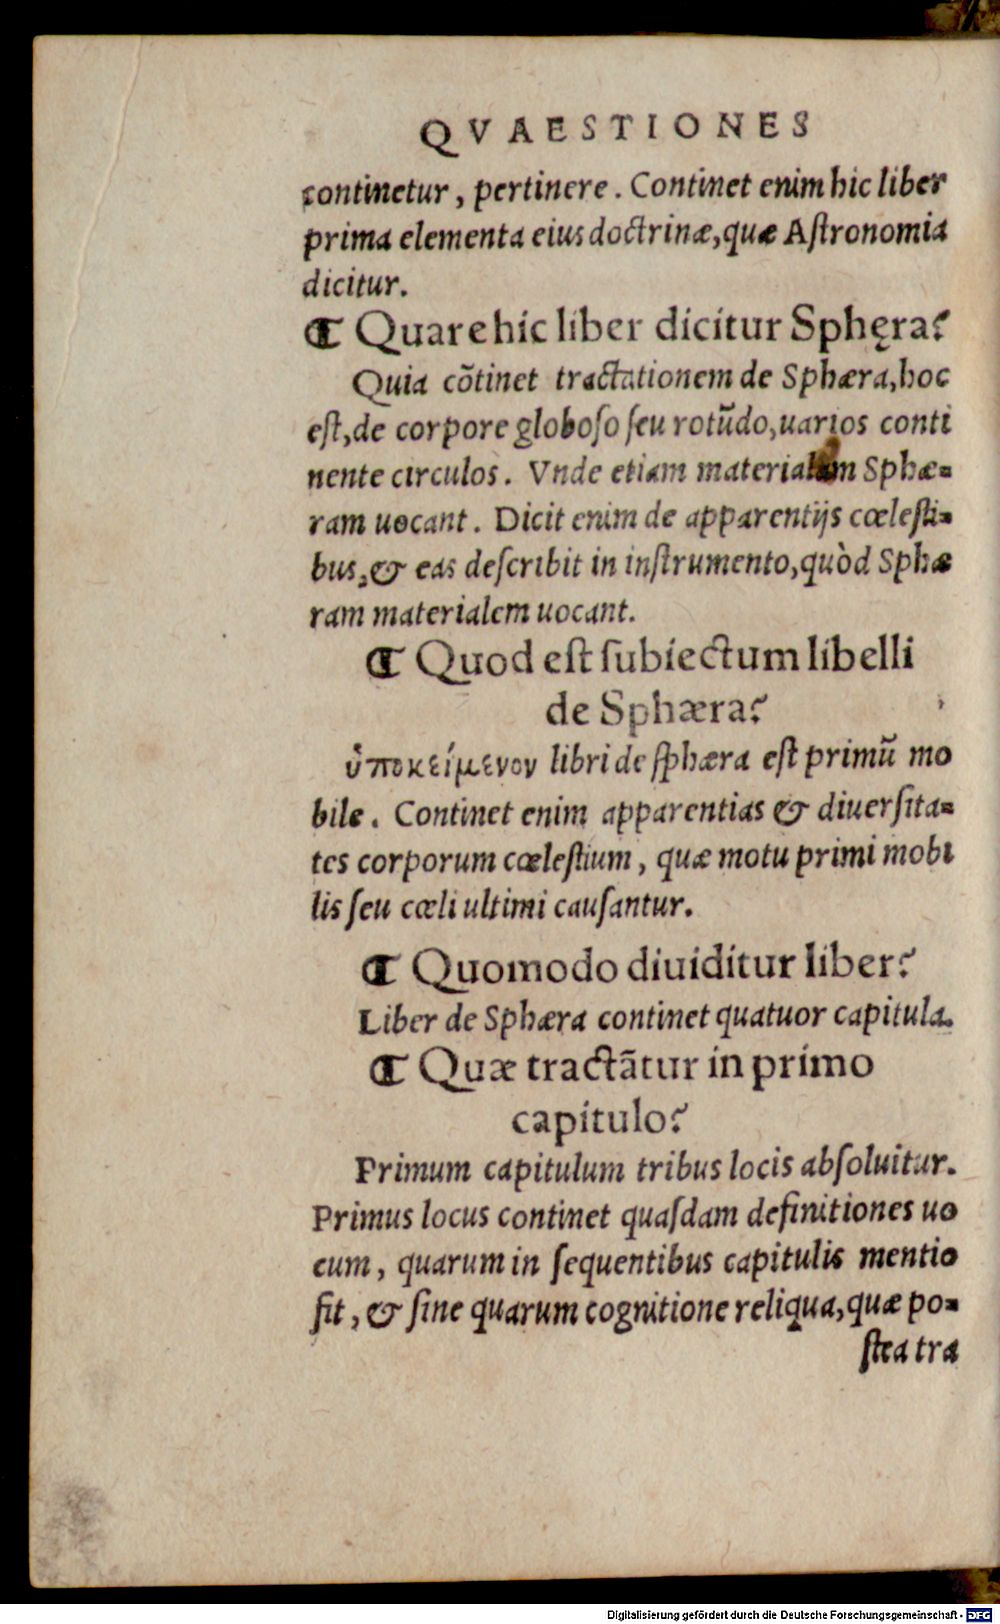 QVAESTIONES
continetur, pertinere. Continet enim hic liber
prima elementa eius doctrinæ, quæ Aſtronomia
dicitur.
¶ Quare hic liber dicitur Sphęra?
Quia cõtinet tractationem de Sphæra, hoc
eſt, de corpore globoſo ſeu rotũdo, uarios conti
nente circulos. Vnde etiam materialem Sphæ-
ram uocant. Dicit enim de apparentijs cœleſti-
bus, & eas deſcribit in inſtrumento, quòd Sphæ
ram materialem uocant.
¶ Quod eſt ſubiectum libelli
de Sphæra?
ὑποκείμενον libri de ſphæra eſt primũ mo
bile. Continet enim apparentias & diuerſita-
tes corporum cœleſtium, quæ motu primi mobi
lis ſeu cœli ultimi cauſantur.
¶ Quomodo diuiditur liber?
Liber de Sphæra continet quatuor capitula.
¶ Quæ tractãtur in primo
capitulo?
Primum capitulum tribus locis abſoluitur.
Primus locus continet quaſdam definitiones uo
cum, quarum in ſequentibus capitulis mentio
fit, & ſine quarum cognitione reliqua, quæ po-
ſtea tra
Digitalisierung gefördert durch die Deutsche Forschungsgemeinschaft - DFG